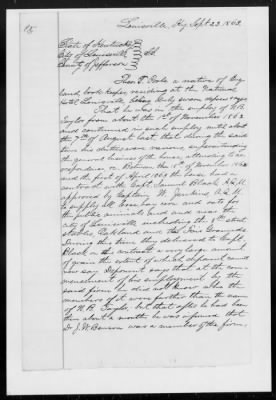 Louisville, Ky Sept 23 1863.
State of Kentucky
City of Louisville
County of Jefferson
a native of Eng
land, book keeper, residing at the National
Hotel Louisville, being duly sworn deposes & says
That he was in the employ of N.B.
Taylor from about the 1st of November 1862
and continued in such employ until about
the 7th of August last that during the said
time his duties were various, superintending
the general business of the house, attending to cor
respondence &c Between the 1st of November 1862
and the first of April 1863 the house had a
contract with Capt. Samuel Black, A.Q.M.
approved by Captain Jenkins, A.Q.M.
to supply all corn hay corn and oats for
the public animals in and near the
city of Louisville including the street
Stables Oakland and the Fair Grounds
During this time they delivered to Capt
Black on this contract a very large amount
of grain the extent of which deponent cannot
now say. Deponent says that at the com
mencement of his employment by the
said firm he did not know who the
members of it were further than the name
of N.B. Taylor, but that after he had been
there about a month he was informed that
Dr. J.W. Benson was a member of the firm,